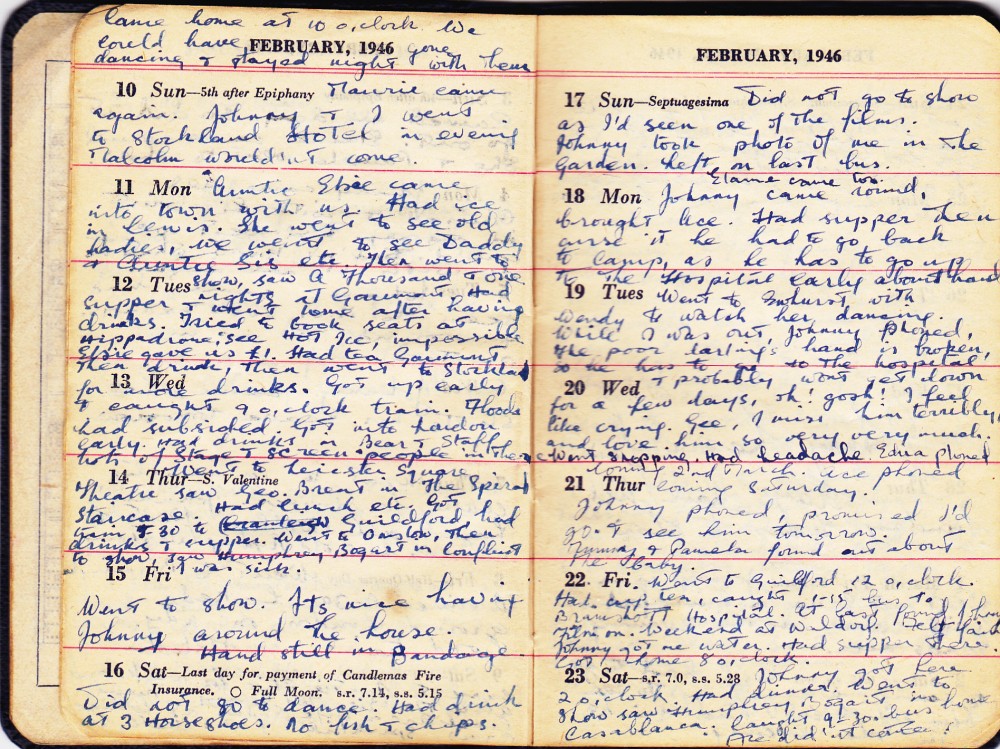 Came home at 10 o,clock. We
could have gone
FEBRUARY, 1946
dancing & stayed night with them
10 Sun—5th after Epiphany Maurie came
again. Johnny & I went
to Stockland Hotel in evening
Malcolm wouldn't come.
11 Mon Auntie Elsie came
into town with us. Had ice
in Lewis. She went to see old
ladies, we went to see Daddy
& Auntie Sis etc. Then went to
12 Tues show, saw A Thousand & one
nights at Gaumont. Had
supper & went home after having
drinks. Tried to book seats at
Hippodrome, see Hot Ice, impossible
Elsie gave us £1. Had tea Gaumont
then drink, then went to Stockland
13 Wed
for more drinks. Got up early
& caught 9 o,clock train. Floods
had subsided. Got into London
early. Had drinks in Bear & Staff
lots of Stage & screen people in there
14 Thur—S. Valentine Went to Leicester Square
Theatre saw Geo. Brent in The Spiral
Staircase. Had lunch etc. Got
train 5-30 to Guildford, had
drinks & supper. Went to Onslow, then
to show, saw Humphrey Bogart in Conflict
15 Fri I was sick.
Went to show. Its nice having
Johnny around the house.
Hand still in Bandage.
16 Sat—Last day for payment of Candlemas Fire
Insurance. Full Moon. s.r. 7.14, s.s. 5.15
Did not go to dance. Had drink
at 3 Horseshoes. No fish & chips.
FEBRUARY, 1946
17 Sun—Septuagesima Did not go to show
as I'd seen one of the films.
Johnny took photo of me in the
Garden. Left on last bus.
Elaine came too.
18 Mon Johnny came round,
brought Lee. Had supper then
curse it he had to go back
to camp, as he has to go up
to the Hospital early about hand
19 Tues Went to Ewhurst with
Wendy to watch her dancing.
While I was out, Johnny phoned,
the poor darling's hand is broken,
so he has to go to the hospital
20 Wed & probably wont get down
for a few days, oh! gosh! I feel
like crying. Gee, I miss him terribly,
and love him so very very much.
Went shopping. Had headache. Edna phoned
coming 2nd March. Lee phoned
21 Thur coming Saturday.
Johnny phoned, promised I'd
go & see him tomorrow.
Jimmy & Pamela found out about
the baby.
22 Fri. Went to Guilford 12 o,clock.
Had cup tea, caught 1-15 bus to
Bramshott Hospital. At last found Johnny
Film on. Weekend at Waldorf. Felt faint
Johnny got me water. Had supper there.
Got home 8 o,clock.
23 Sat—s.r. 7.0, s.s. 5.28 Johnny got here
2 o,clock. Had dinner. Went to
show saw Humphrey Bogart in
Casablanca. Caught 9-30 bus home
Lee did'nt come!